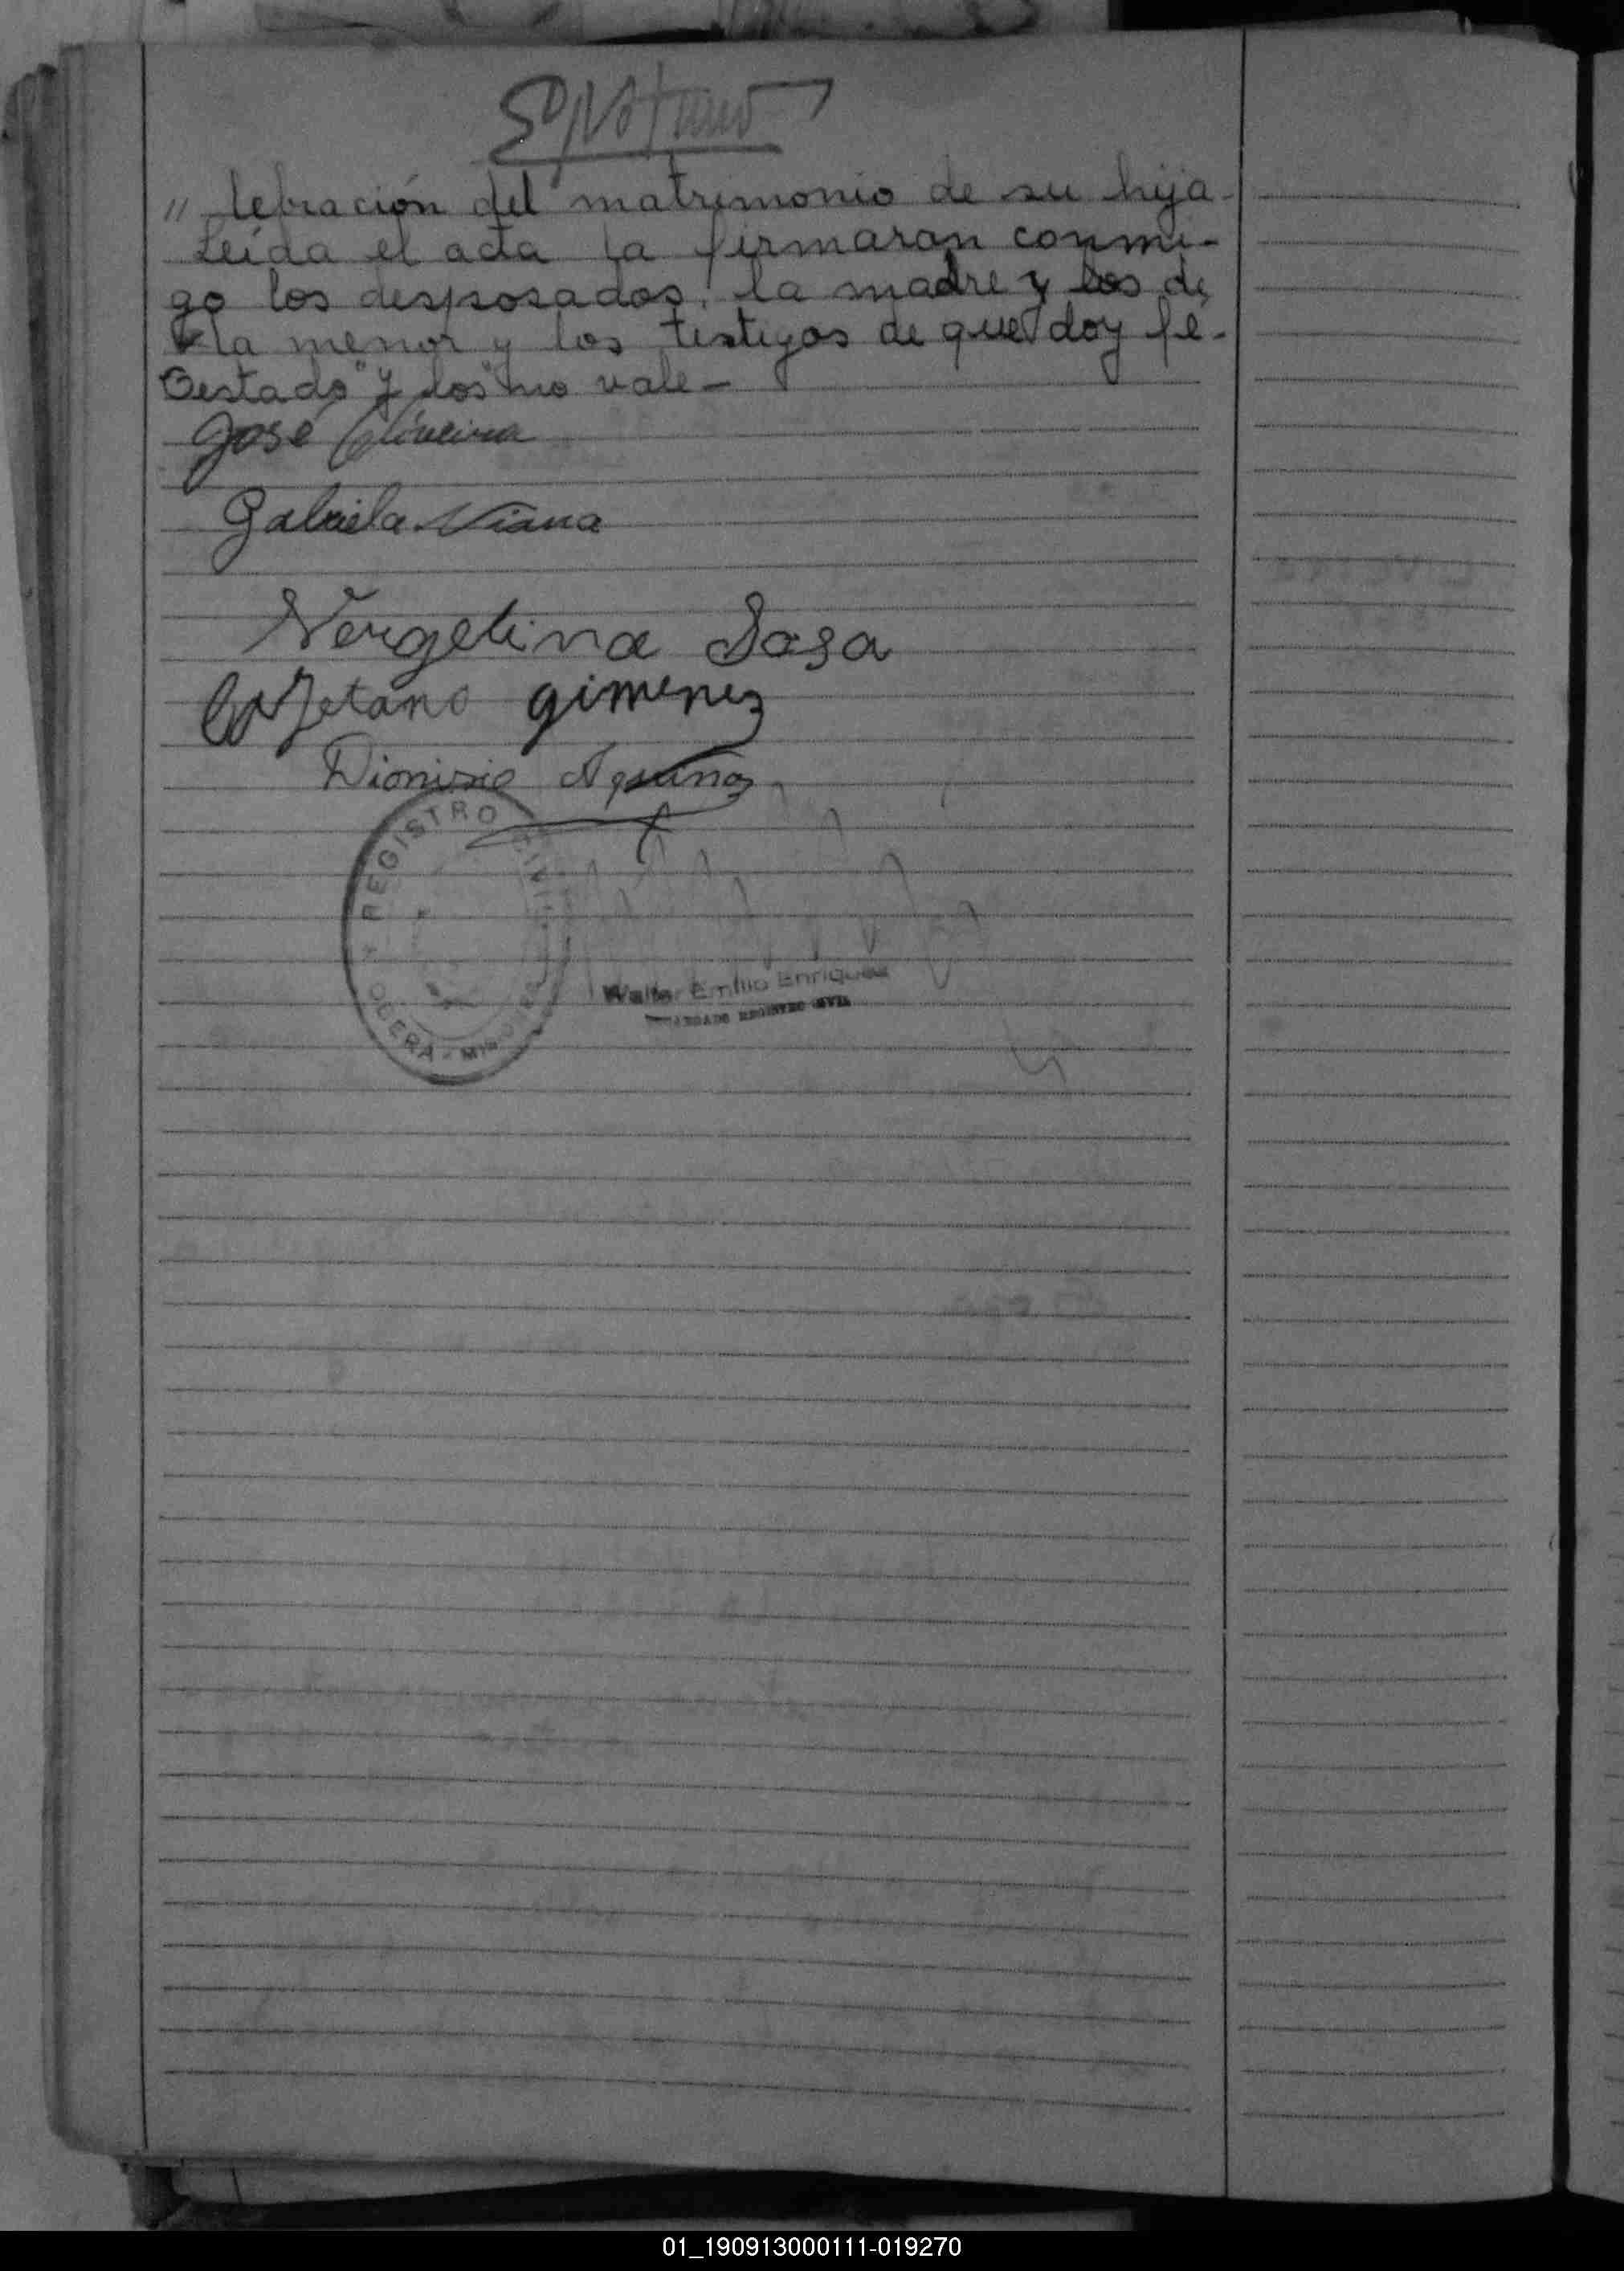 " lebración del matrimonio de su hija-
Leída el acta la firmaran conmi-
go los desposados, la madre y los de
la menor y los testigos de que doy fé-
Testado "y los" no vale-
José Oliveira
Gabriela Viana
Vergelina Sosa
Cayetano gimenez
Dionisio Aquino
REGISTRO CIVIL
OLERA - MISIONES
Walter Emilio Enriquez
ENCARGADO REGISTRO CIVIL
01_190913000111-019270